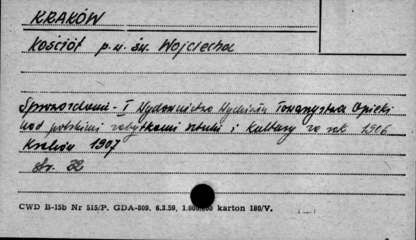 KRAKÓW
Kościół p.w. św. Wojciecha
Sprawozdanie - I Wydawnictwa Wydziału Towarzystwa Opieki
nad polskimi zabytkami sztuki i Kultury za rok 1906
Kraków 1907
str. 22
CWD B-15b Nr 515/P. GDA-809. 6.3.59, 1.000.000 karton 180/V.